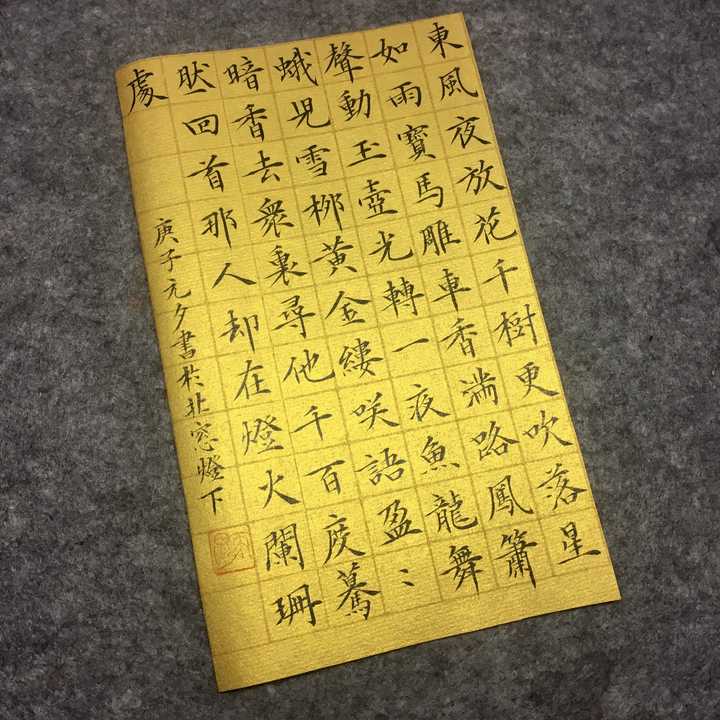 東風夜放花千樹更吹落星
如雨寶馬雕車香滿路鳳簫
聲動玉壺光轉一夜魚龍舞
蛾児雪栁黃金縷咲語盈〻
暗香去衆裏尋他千百度驀
然回首那人却在燈火闌珊
處
庚子元夕書於北窓燈下